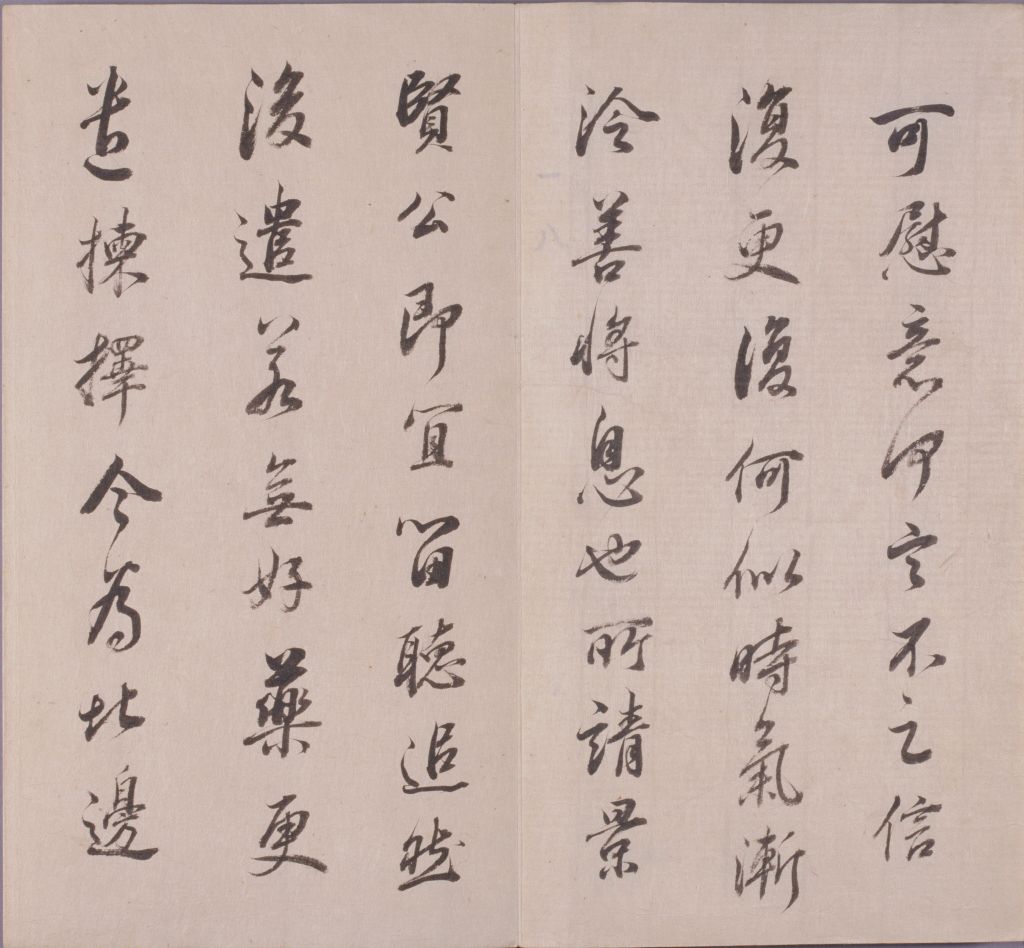 可慰意何定不之信
復更復何似時氣漸
冷善將息也所請景
賢公即宜留聽追然
後遣若無好藥更
遣揀擇令為北邊